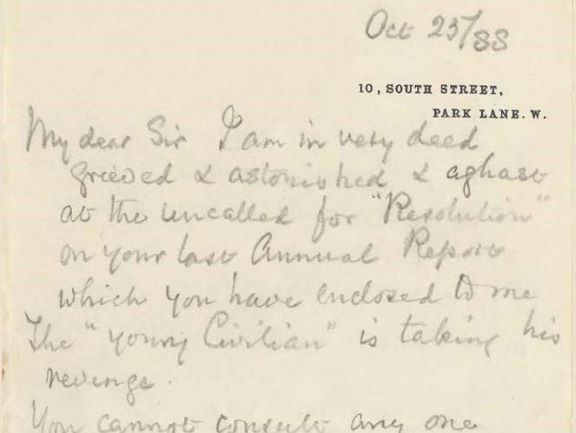 Oct 23/88
10, SOUTH STREET,
PARK LANE. W.
My dear Sir I am in very deed
grieved & astonished & aghast
at the uncalled for "Resolution"
on your last Annual Report
which you have enclosed to me
The "young Civilian" is taking his
revenge.
You cannot consult any one